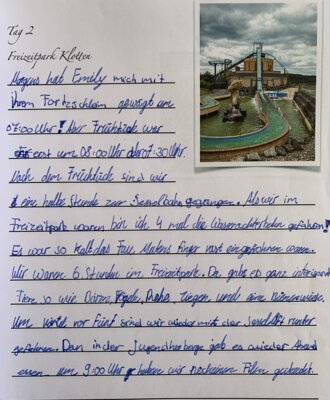 Tag 2
Freizeitpark Klotten
Morgens hat Emily mich mit
ihrem geweckt um
07:00 Uhr! Aber Frühstück war
erst um 08:00 Uhr oder 7:30 Uhr.
Nach dem Frühstück sind wir
eine halbe Stunde zur Sesselbahn gegangen. Als wir im
Freizeitpark waren bin ich 4 mal die gefahren!
Es war so kalt das Frau Finger fast eingefroren waren.
Wir waren 6 Stunden im Freizeitpark. Da gabs es ganz
Tiere so wie Bären, Ziegen und eine
Um viertel vor fünf sind wir wieder mit der runter
gefahren. Dan in der Jugendherberge gab es wieder Abend
essen um 9:00 Uhr haben wir noch einen Film geguckt.